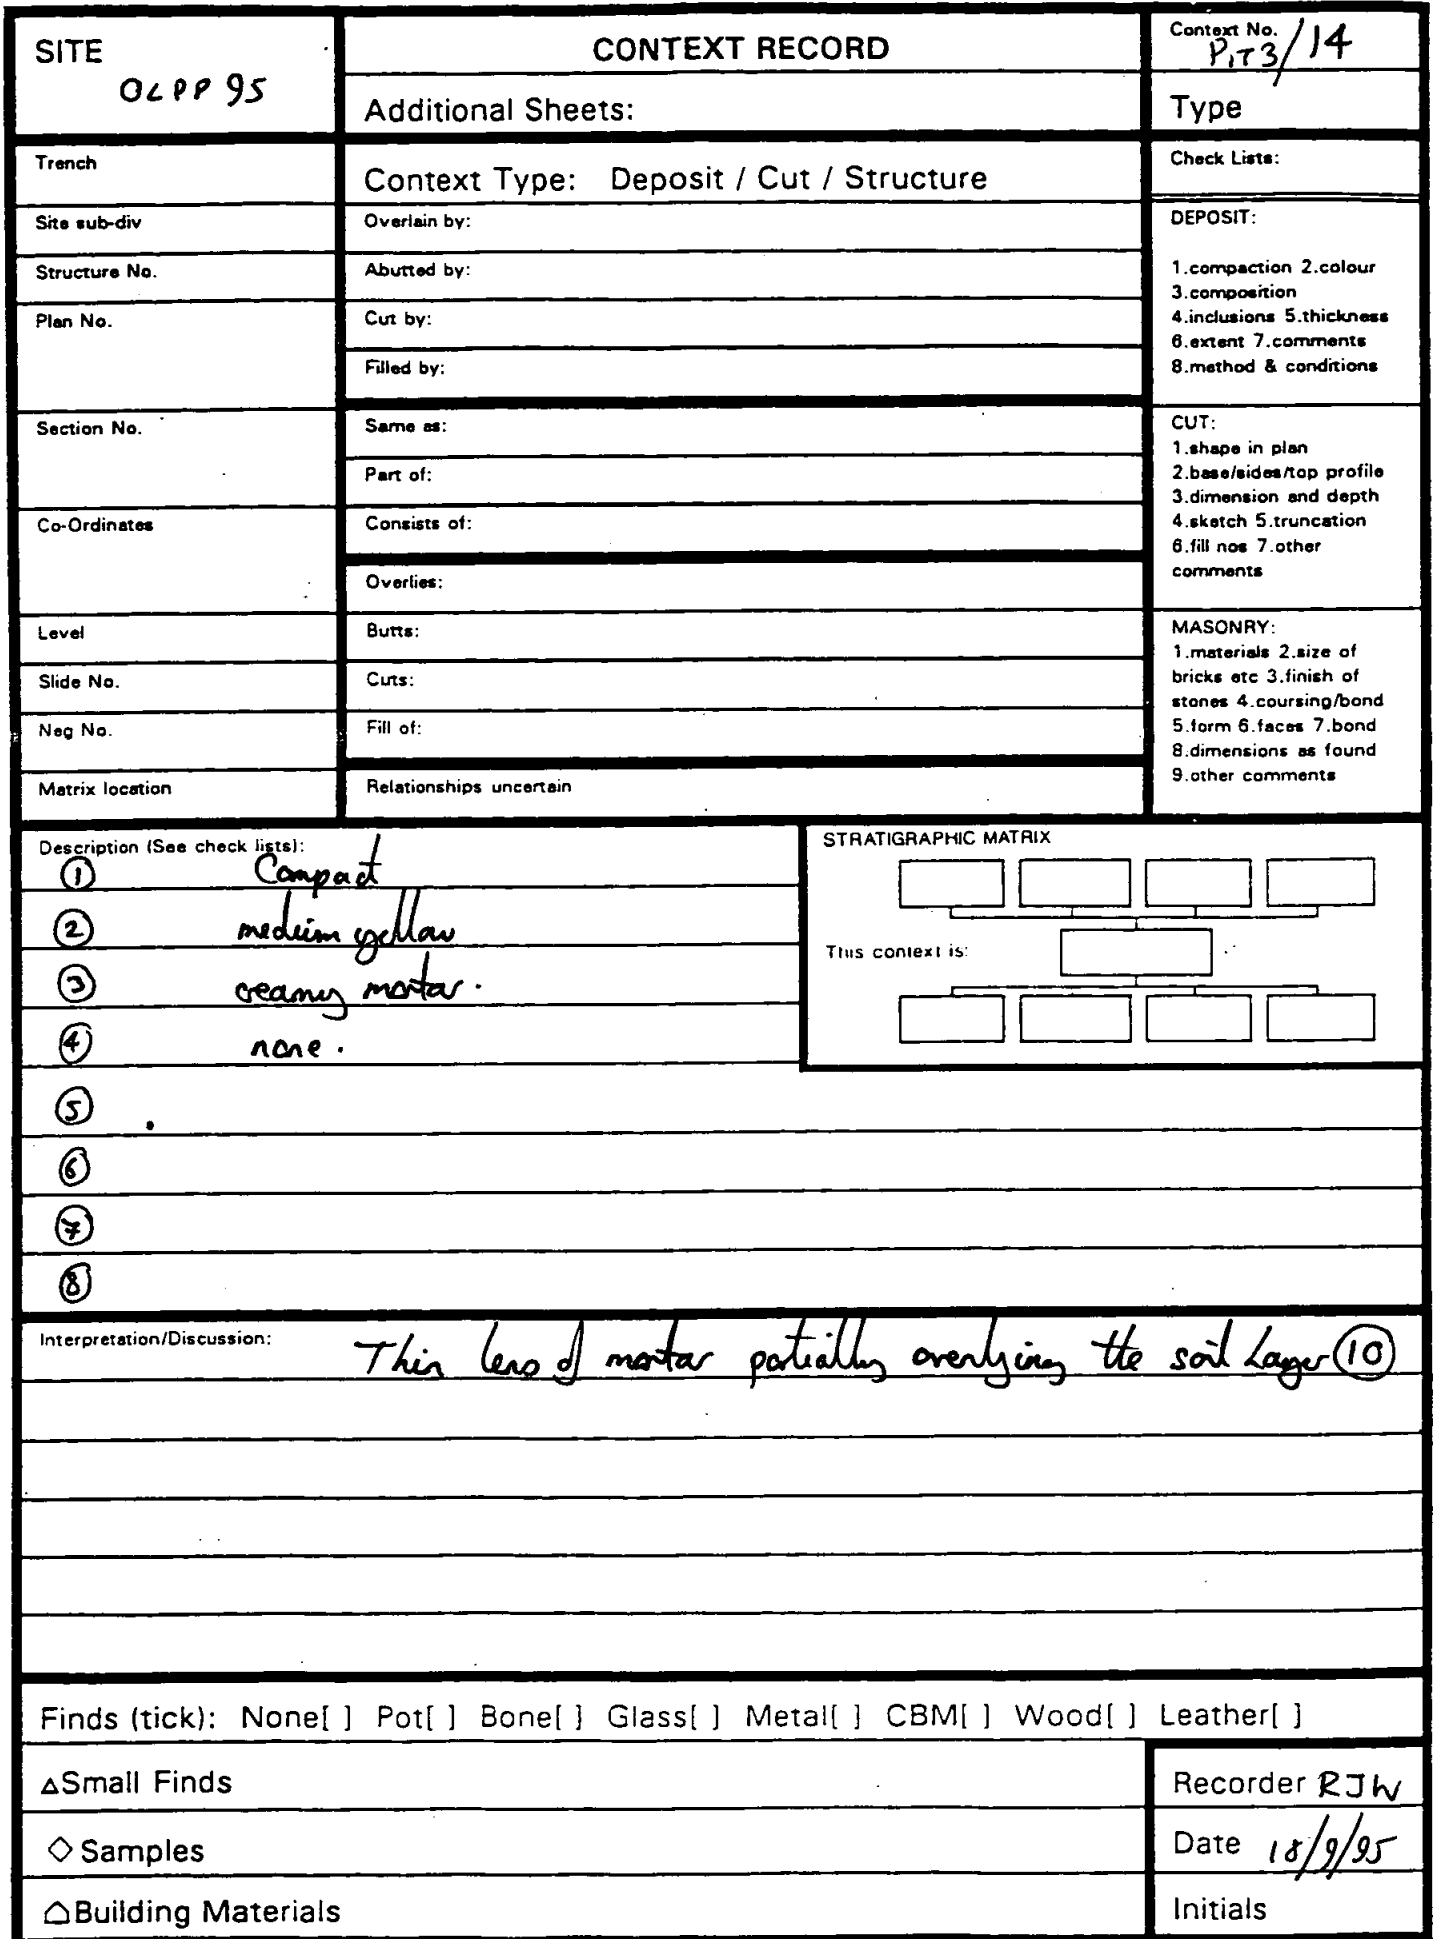 SITE
OLPP 95
CONTEXT RECORD
Additional Sheets:
Context No.
PIT3/14
Type
Trench
Site sub-div
Structure No.
Plan No.
Section No.
Co-Ordinates
Level
Slide No.
Neg No.
Matrix location
Context Type: Deposit / Cut / Structure
Overlain by:
Abutted by:
Cut by:
Filled by:
Same as:
Part of:
Consists of:
Overlies:
Butts:
Cuts:
Fill of:
Relationships uncertain
Check Lists:
DEPOSIT:
1.compaction 2.colour
3.composition
4.inclusions 5.thickness
6.extent 7.comments
8.method & conditions
CUT:
1.shape in plan
2.base/sides/top profile
3.dimension and depth
4.sketch 5.truncation
6.fill nos 7.other
comments
MASONRY:
1.materials 2.size of
bricks etc 3.finish of
stones 4.coursing/bond
5.form 6.faces 7.bond
8.dimensions as found
9.other comments
Description (See check lists):
① Compact
② medium yellow
③ creamy mortar.
④ none.
⑤
⑥
⑦
⑧
STRATIGRAPHIC MATRIX
This context is:
Interpretation/Discussion:
Thin lens of mortar partially overlying the soil Layer ⑩
Finds (tick): None[ ] Pot[ ] Bone[ ] Glass[ ] Metal[ ] CBM[ ] Wood[ ] Leather[ ]
△Small Finds
◇Samples
Building Materials
Recorder RJW
Date 18/9/95
Initials